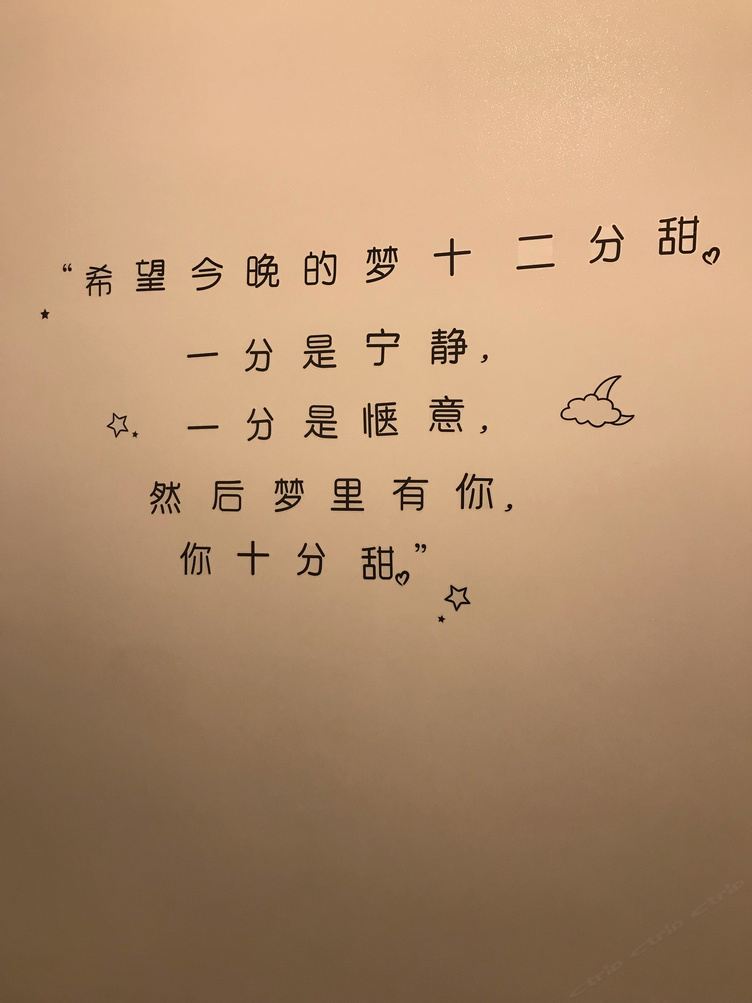 “希望今晚的梦十二分甜。
一分是宁静，
一分是惬意，
然后梦里有你，
你十分甜。”
ctrip ctrip ctrip